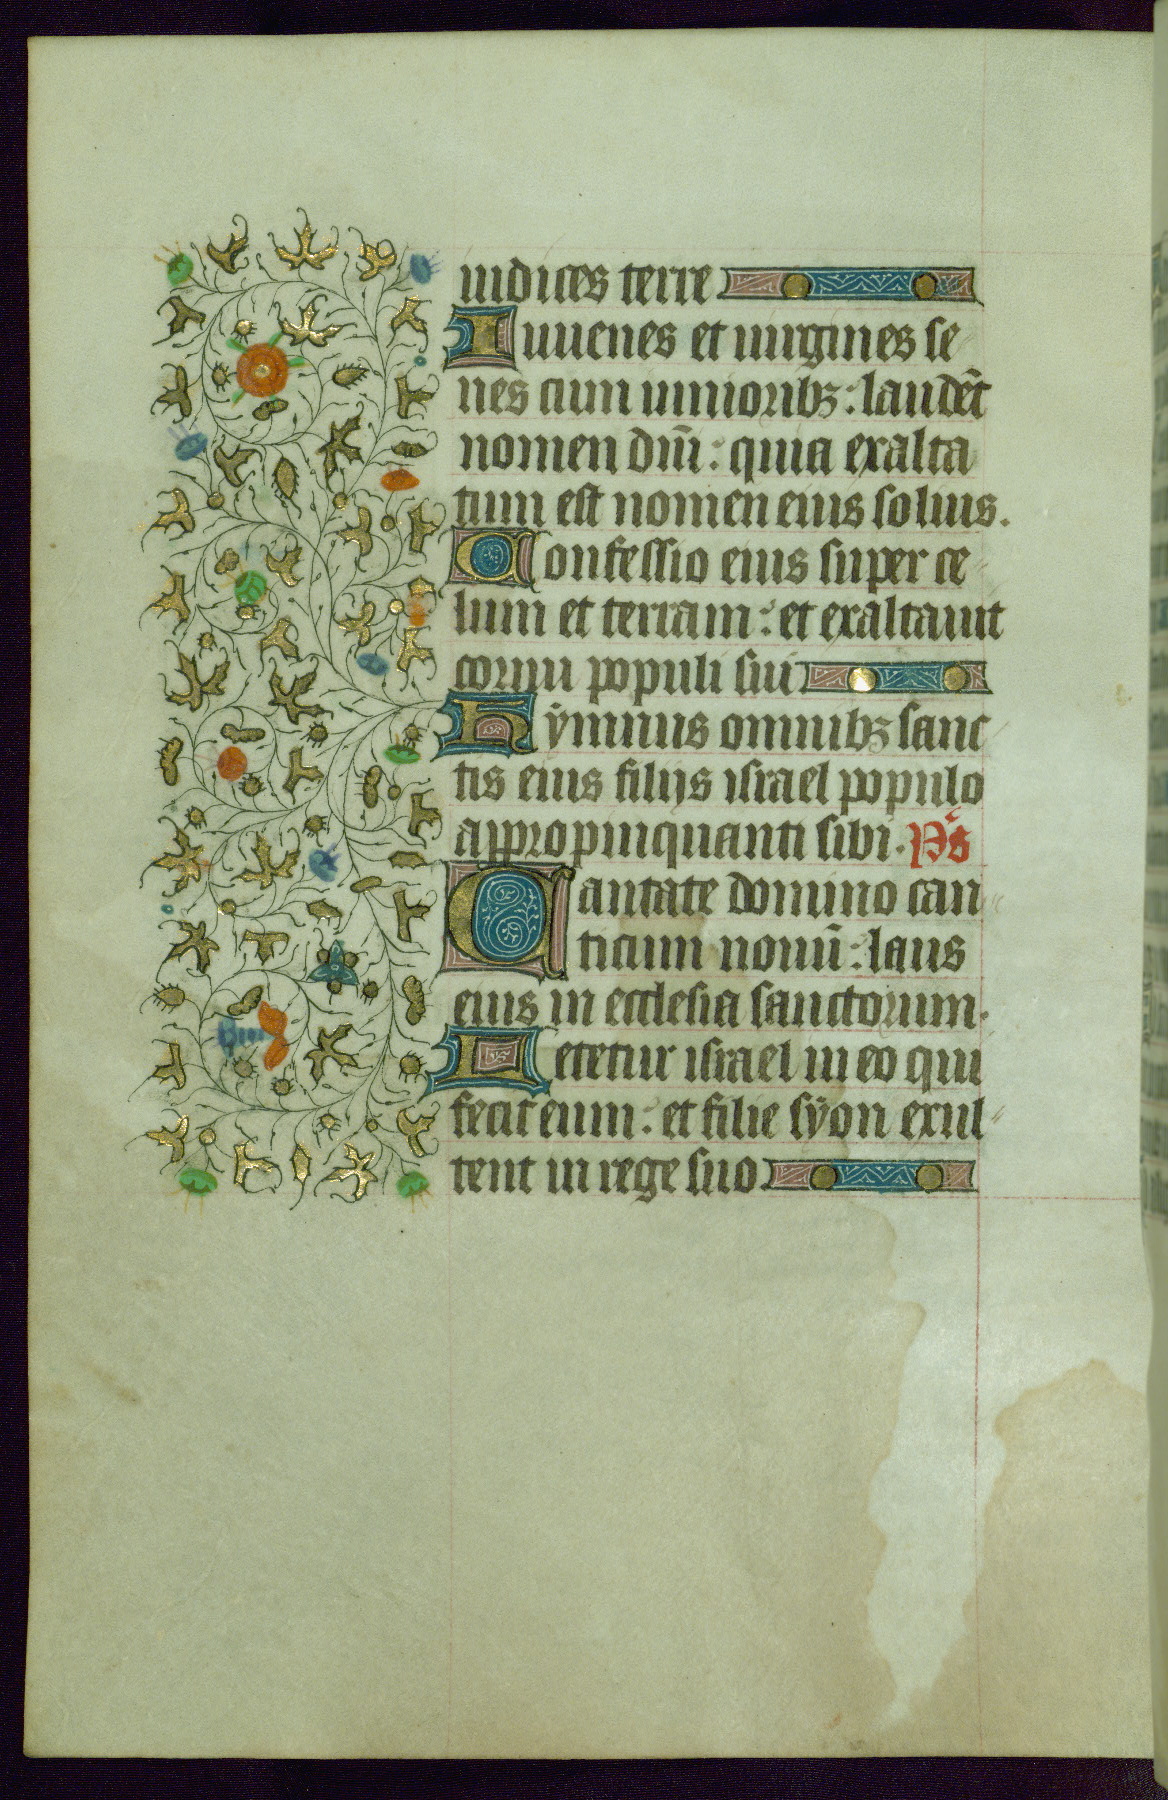 iudices terre
Iuuenes et uirgines se
nes cum iunioribꝫ: laudēt
nomen dn̄i: quia exalta
tum est nomen eius solius.
Confessio eius super ce
lum et terram: et exaltauit
cornu populi sui
Hẏmnus omnibꝫ sanc
tis eius filijs israel populo
appropinquanti sibi. Ps̄
Cantate domino can
ticum nouū: laus
eius in ecclesia sanctorum.
Letetur israel in eo qui
fecit eum: et filie sẏon exul
tent in rege suo